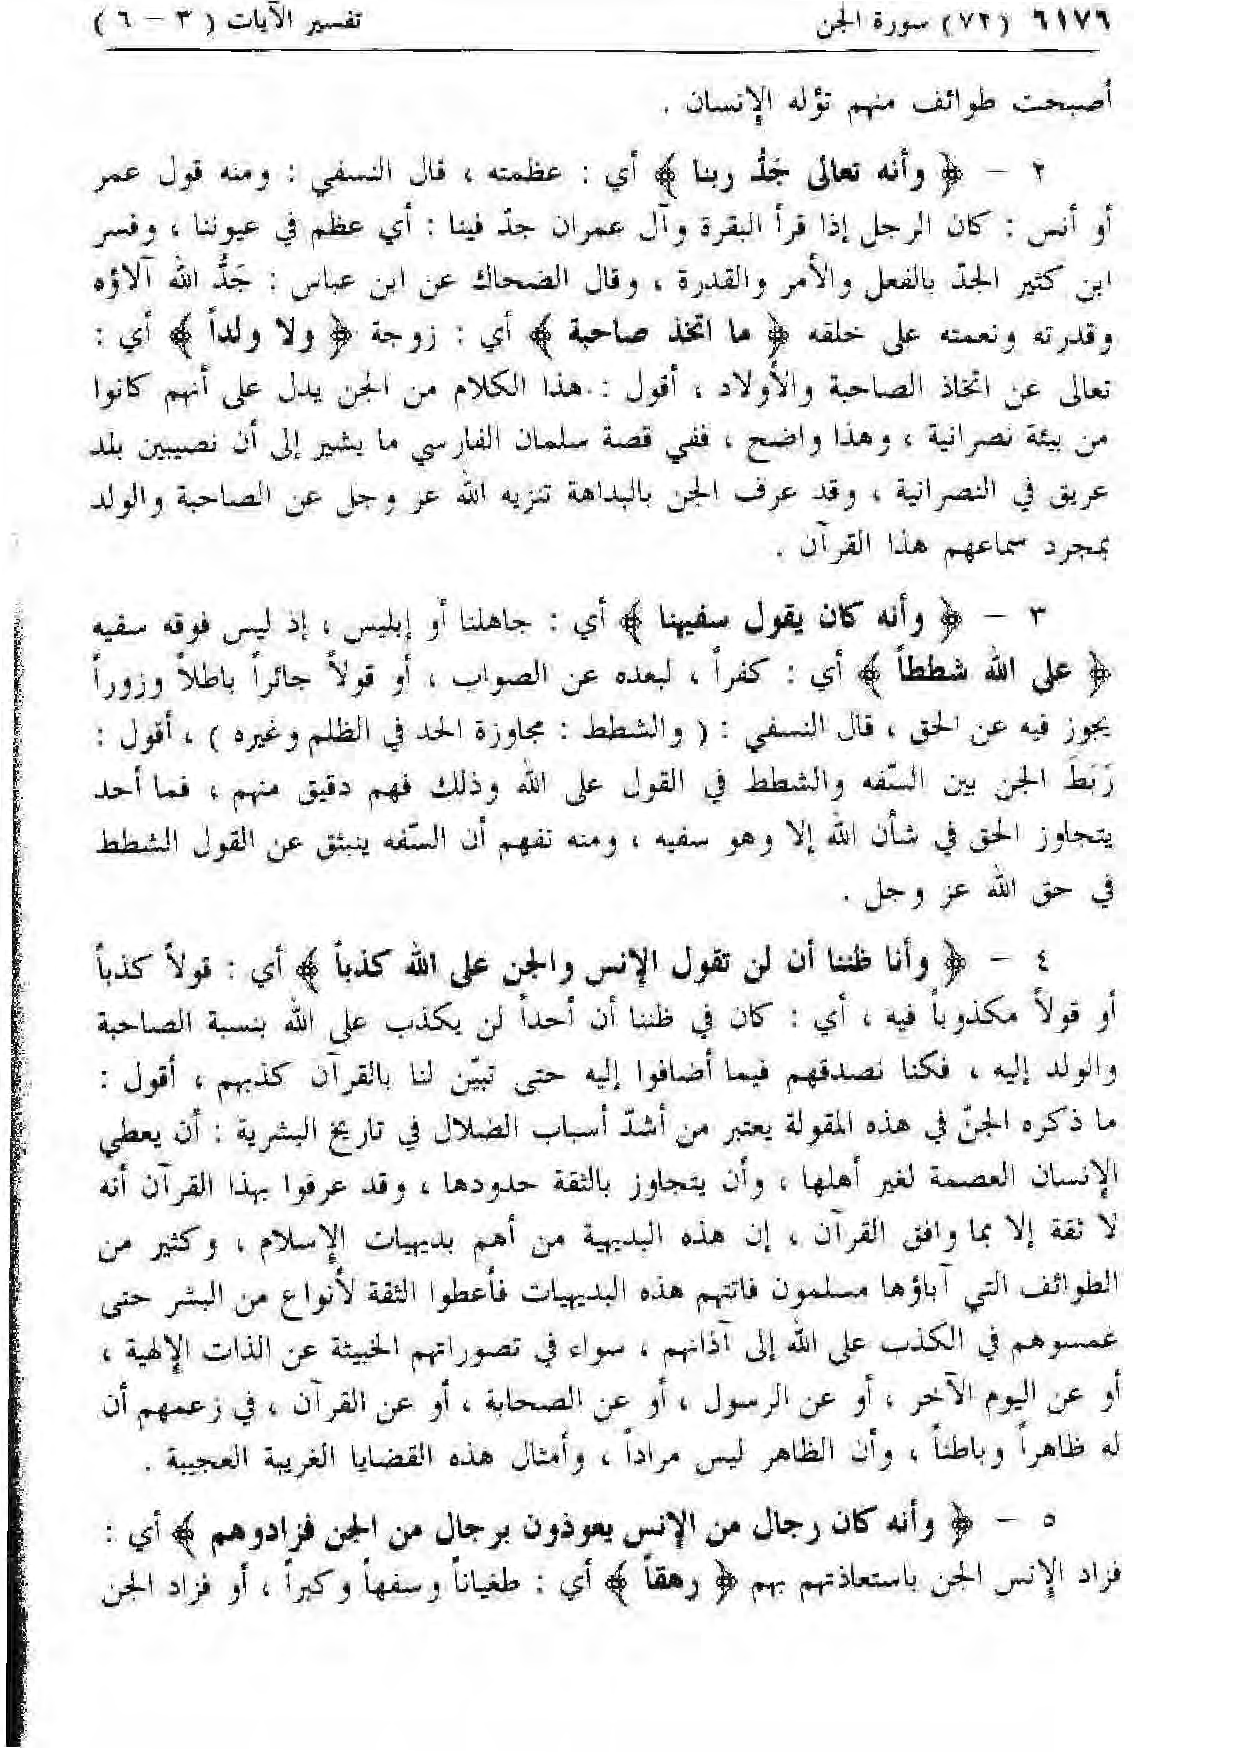 ٦١٧٦ (٧٢) سورة الجن تفسير الآيات ( ٣ – ٦ )
أصبحت طوائف منهم تؤله الإنسان .
٢ – ﴿ وأنه تعالى جَدُّ ربنا ﴾ أي : عظمته ، قال النسفي : ومنه قول عمر
أو أنس : كان الرجل إذا قرأ البقرة وآل عمران جدّ فينا : أي عظم في عيوننا ، وفسر
ابن كثير الجدّ بالفعل والأمر والقدرة ، وقال الضحاك عن ابن عباس : جَدُّ الله آلاؤه
وقدرته ونعمته على خلقه ﴿ ما اتخذ صاحبة ﴾ أي : زوجة ﴿ ولا ولداً ﴾ أي :
تعالى عن اتخاذ الصاحبة والأولاد ، أقول : هذا الكلام من الجن يدل على أنهم كانوا
من بيئة نصرانية ، وهذا واضح ، ففي قصة سلمان الفارسي ما يشير إلى أن نصيبين بلد
عريق في النصرانية ، وقد عرف الجن بالبداهة تنزيه الله عز وجل عن الصاحبة والولد
بمجرد سماعهم هذا القرآن .
٣ – ﴿ وأنه كان يقول سفيهنا ﴾ أي : جاهلنا أو إبليس ، إذ ليس فوقه سفيه
﴿ على الله شططاً ﴾ أي : كفراً ، لبعده عن الصواب ، أو قولاً جائراً باطلاً وزوراً
يجوز فيه عن الحق ، قال النسفي : ( والشطط : مجاوزة الحد في الظلم وغيره ) ، أقول :
رَبَطَ الجن بين السّفه والشطط في القول على الله وذلك فهم دقيق منهم ، فما أحد
يتجاوز الحق في شأن الله إلا وهو سفيه ، ومنه نفهم أن السّفه ينبثق عن القول الشطط
في حق الله عز وجل .
٤ – ﴿ وأنا ظننا أن لن تقول الإنس والجن على الله كذباً ﴾ أي : قولاً كذباً
أو قولاً مكذوباً فيه ، أي : كان في ظننا أن أحداً لن يكذب على الله بنسبة الصاحبة
والولد إليه ، فكنا نصدقهم فيما أضافوا إليه حتى تبيّن لنا بالقرآن كذبهم ، أقول :
ما ذكره الجنّ في هذه المقولة يعتبر من أشدّ أسباب الضلال في تاريخ البشرية : أن يعطي
الإنسان العصمة لغير أهلها ، وأن يتجاوز بالثقة حدودها ، وقد عرفوا بهذا القرآن أنه
لا ثقة إلا بما وافق القرآن ، إن هذه البديهية من أهم بديهيات الإسلام ، وكثير من
الطوائف التي آباؤها مسلمون فاتتهم هذه البديهيات فأعطوا الثقة لأنواع من البشر حتى
غمسوهم في الكذب على الله إلى آذانهم ، سواء في تصوراتهم الخبيثة عن الذات الإلهية ،
أو عن اليوم الآخر ، أو عن الرسول ، أو عن الصحابة ، أو عن القرآن ، في زعمهم أن
له ظاهراً وباطناً ، وأن الظاهر ليس مراداً ، وأمثال هذه القضايا الغريبة العجيبة .
٥ – ﴿ وأنه كان رجال من الإنس يعوذون برجال من الجن فزادوهم ﴾ أي :
فزاد الإنس الجن باستعاذتهم بهم ﴿ رهقاً ﴾ أي : طغياناً وسفهاً وكبراً ، أو فزاد الجن